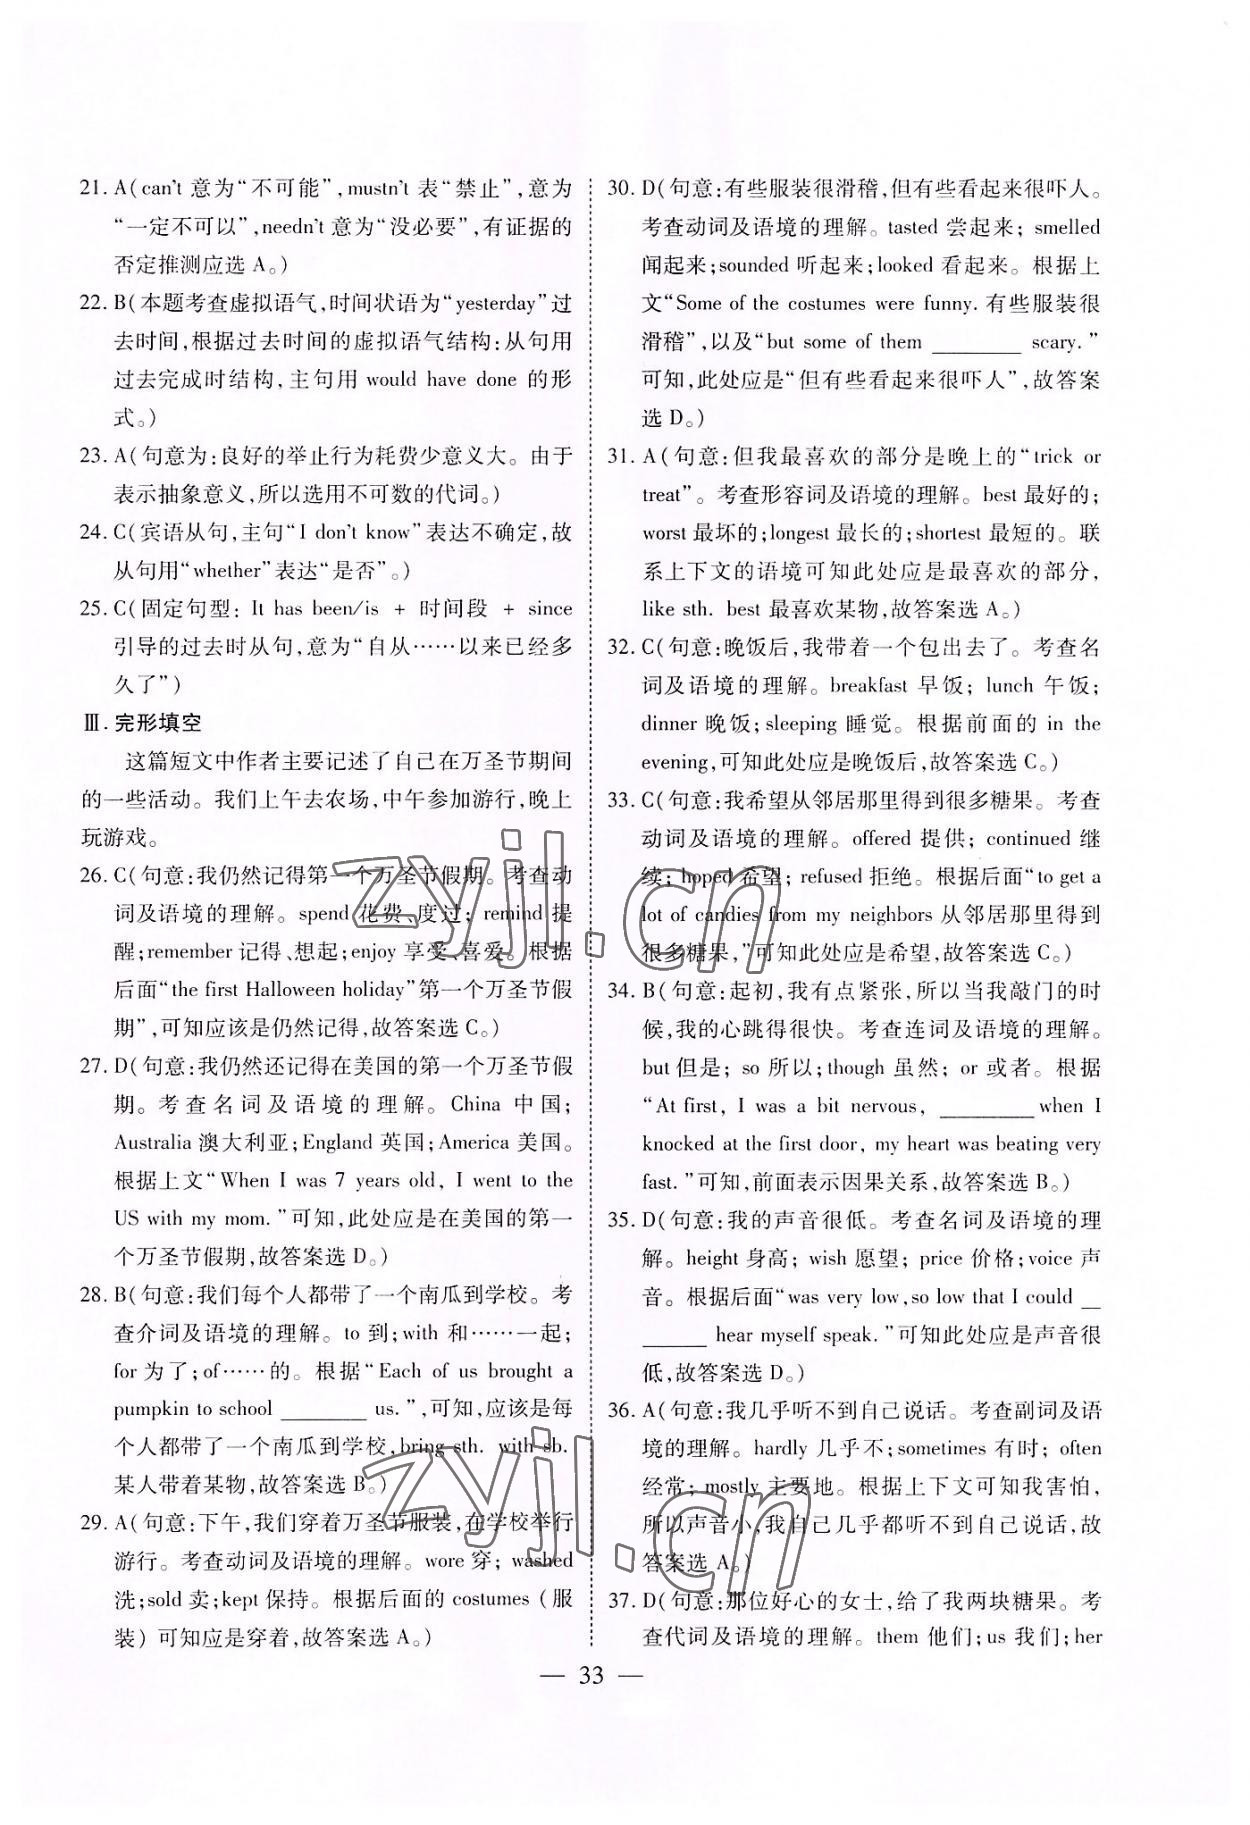 21. A(can't 意为“不可能”,mustn't 表“禁止”,意为
“一定不可以”,needn't 意为“没必要”,有证据的
否定推测应选 A。)
22. B(本题考查虚拟语气,时间状语为“yesterday”过
去时间,根据过去时间的虚拟语气结构:从句用
过去完成时结构,主句用 would have done 的形
式。)
23. A(句意为:良好的举止行为耗费少意义大。由于
表示抽象意义,所以选用不可数的代词。)
24. C(宾语从句,主句“I don't know”表达不确定,故
从句用“whether”表达“是否”。)
25. C(固定句型: It has been/is + 时间段 + since
引导的过去时从句,意为“自从……以来已经多
久了”)
Ⅲ. 完形填空
这篇短文中作者主要记述了自己在万圣节期间
的一些活动。我们上午去农场,中午参加游行,晚上
玩游戏。
26. C(句意:我仍然记得第一个万圣节假期。考查动
词及语境的理解。spend 花费、度过; remind 提
醒;remember 记得、想起;enjoy 享受、喜爱。根据
后面“the first Halloween holiday”第一个万圣节假
期”,可知应该是仍然记得,故答案选 C。)
27. D(句意:我仍然还记得在美国的第一个万圣节假
期。考查名词及语境的理解。China 中国;
Australia 澳大利亚;England 英国;America 美国。
根据上文“When I was 7 years old, I went to the
US with my mom.”可知,此处应是在美国的第一
个万圣节假期,故答案选 D。)
28. B(句意:我们每个人都带了一个南瓜到学校。考
查介词及语境的理解。to 到;with 和……一起;
for 为了;of……的。根据“Each of us brought a
pumpkin to school ________ us.”,可知,应该是每
个人都带了一个南瓜到学校,bring sth. with sb.
某人带着某物,故答案选 B。)
29. A(句意:下午,我们穿着万圣节服装,在学校举行
游行。考查动词及语境的理解。wore 穿; washed
洗;sold 卖;kept 保持。根据后面的 costumes(服
装)可知应是穿着,故答案选 A。)
30. D(句意:有些服装很滑稽,但有些看起来很吓人。
考查动词及语境的理解。tasted 尝起来; smelled
闻起来;sounded 听起来;looked 看起来。根据上
文“Some of the costumes were funny. 有些服装很
滑稽”,以及“but some of them ________ scary.”
可知,此处应是“但有些看起来很吓人”,故答案
选 D。)
31. A(句意:但我最喜欢的部分是晚上的“trick or
treat”。考查形容词及语境的理解。best 最好的;
worst 最坏的;longest 最长的;shortest 最短的。联
系上下文的语境可知此处应是最喜欢的部分,
like sth. best 最喜欢某物,故答案选 A。)
32. C(句意:晚饭后,我带着一个包出去了。考查名
词及语境的理解。breakfast 早饭; lunch 午饭;
dinner 晚饭;sleeping 睡觉。根据前面的 in the
evening,可知此处应是晚饭后,故答案选 C。)
33. C(句意:我希望从邻居那里得到很多糖果。考查
动词及语境的理解。offered 提供; continued 继
续; hoped 希望; refused 拒绝。根据后面“to get a
lot of candies from my neighbors 从邻居那里得到
很多糖果,”可知此处应是希望,故答案选 C。)
34. B(句意:起初,我有点紧张,所以当我敲门的时
候,我的心跳得很快。考查连词及语境的理解。
but但是; so 所以;though 虽然; or 或者。根据
“At first, I was a bit nervous, ________ when I
knocked at the first door, my heart was beating very
fast.”可知,前面表示因果关系,故答案选 B。)
35. D(句意:我的声音很低。考查名词及语境的理
解。height 身高; wish 愿望; price 价格;voice 声
音。根据后面“was very low,so low that I could __
______ hear myself speak.”可知此处应是声音很
低,故答案选 D。)
36. A(句意:我几乎听不到自己说话。考查副词及语
境的理解。hardly 几乎不;sometimes 有时; often
经常; mostly 主要地。根据上下文可知我害怕,
所以声音小,我自己几乎都听不到自己说话,故
答案选 A。)
37. D(句意:那位好心的女士,给了我两块糖果。考
查代词及语境的理解。them 他们;us 我们;her
— 33 —
zyjl.cn
zyjl.cn